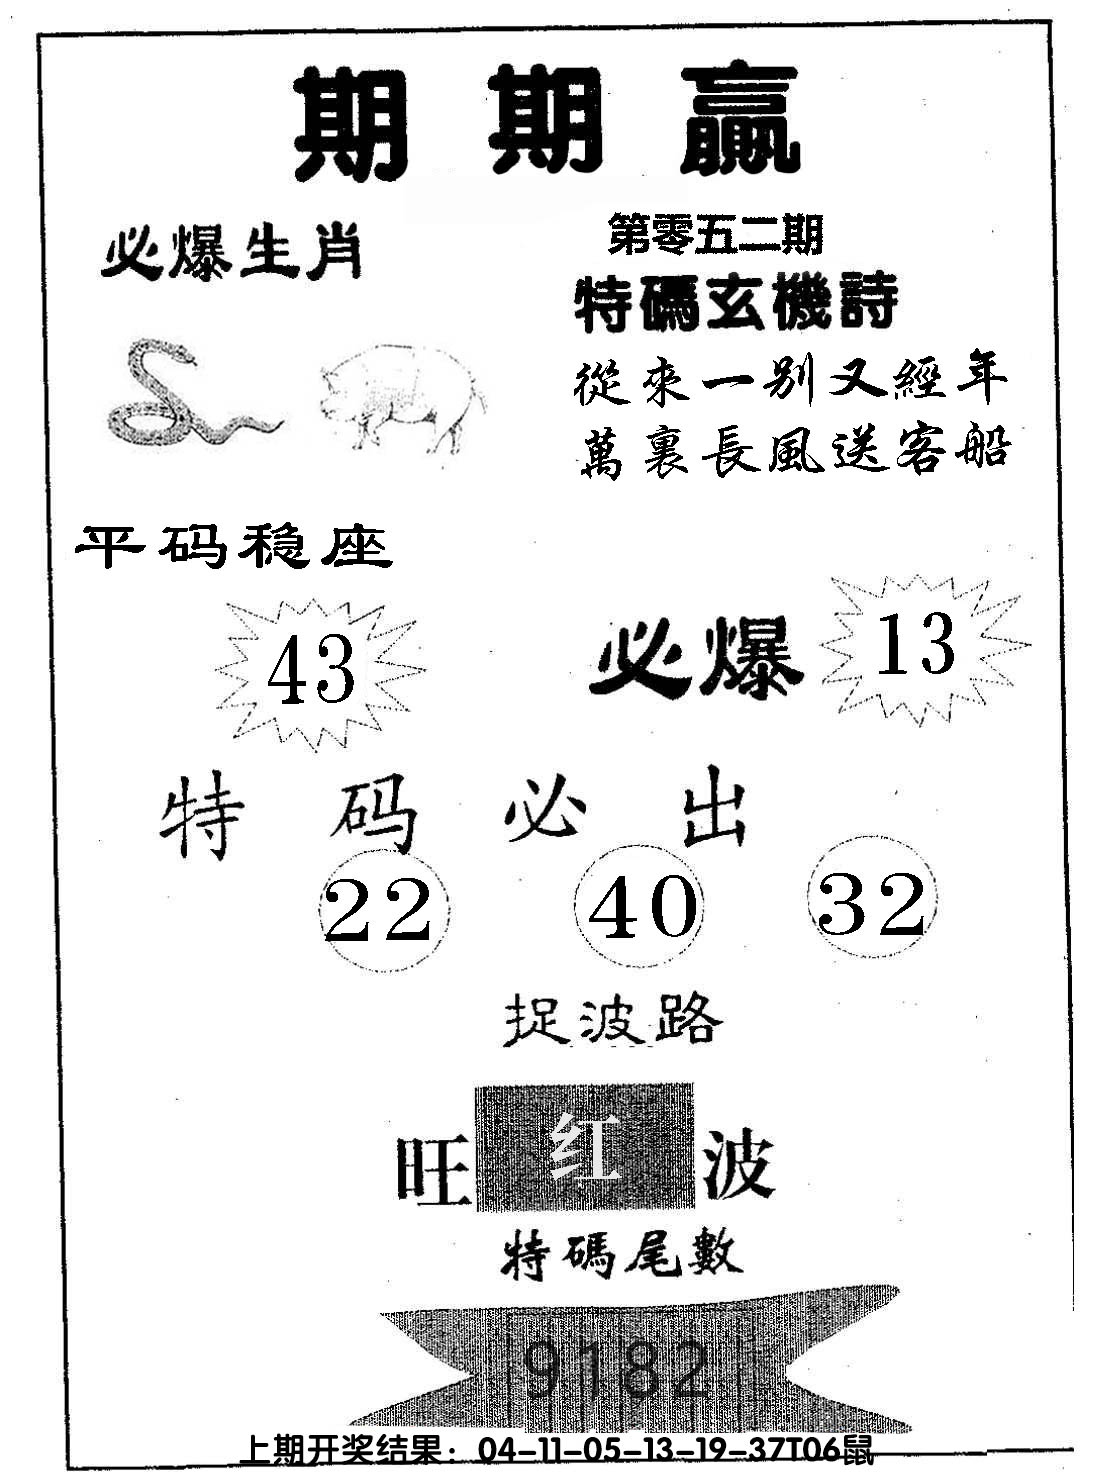 期期赢
必爆生肖
第零五二期
特碼玄機詩
從來一别又經年
萬裏長風送客船
平码稳座
43
必爆 13
特码必出
22 40 32
捉波路
旺红波
特碼尾數
9182
上期开奖结果：04-11-05-13-19-37T06鼠